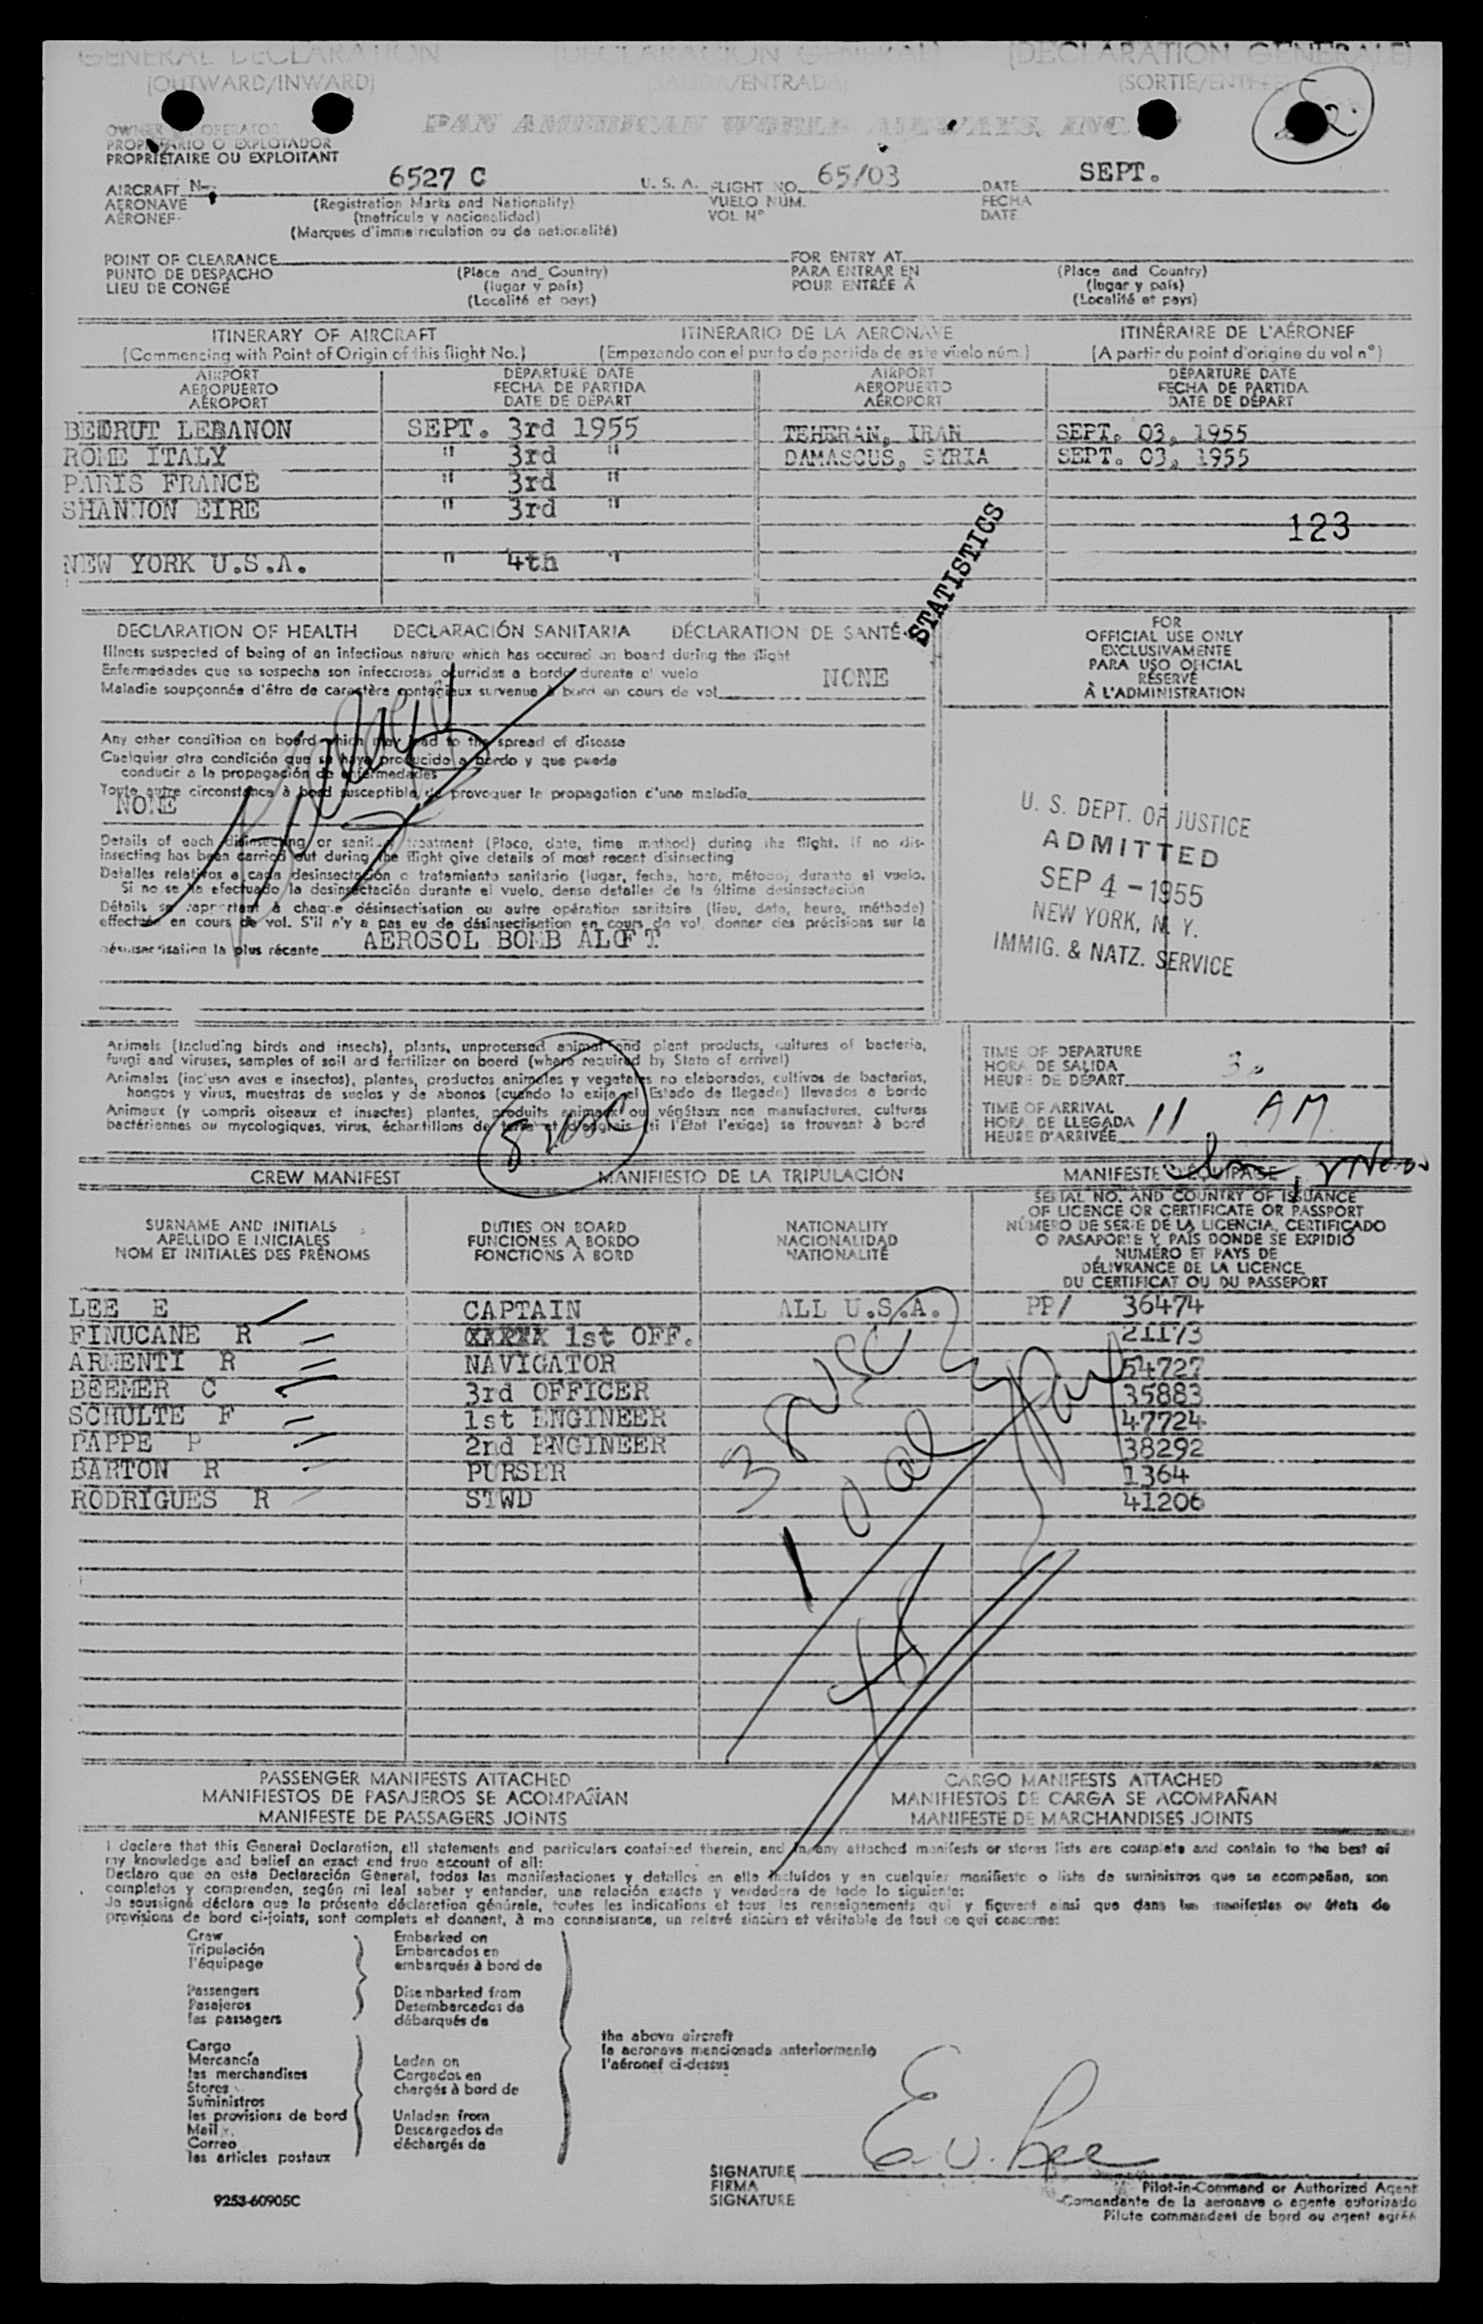 GENERAL DECLARATION (DECLARACION GENERAL) (DECLARATION GENERALE)
(OUTWARD/INWARD) (SALIDA/ENTRADA) (SORTIE/ENTREE)
OWNER OR OPERATOR
PROPIETARIO O EXPLOTADOR
PROPRIÉTAIRE OU EXPLOITANT
PAN AMERICAN WORLD AIRWAYS, INC.
AIRCRAFT N- 6527 C U. S. A. FLIGHT NO. 65/03 DATE SEPT.
AERONAVE (Registration Marks and Nationality) VUELO NÚM. FECHA
AÉRONEF (matrícula y nacionalidad) VOL Nº DATE
(Marques d'immatriculation ou de nationalité)
POINT OF CLEARANCE FOR ENTRY AT
PUNTO DE DESPACHO (Place and Country) PARA ENTRAR EN (Place and Country)
LIEU DE CONGÉ (lugar y país) POUR ENTRÉE À (lugar y país)
(Localité et pays) (Localité et pays)
ITINERARY OF AIRCRAFT ITINERARIO DE LA AERONAVE ITINÉRAIRE DE L'AÉRONEF
(Commencing with Point of Origin of this flight No.) (Empezando con el punto de partida de este vuelo núm.) (A partir du point d'origine du vol nº)
AIRPORT DEPARTURE DATE AIRPORT DEPARTURE DATE
AEROPUERTO FECHA DE PARTIDA AEROPUERTO FECHA DE PARTIDA
AÉROPORT DATE DE DÉPART AÉROPORT DATE DE DÉPART
BEIRUT LEBANON SEPT. 3rd 1955 TEHERAN, IRAN SEPT. 03, 1955
ROME ITALY " 3rd " DAMASCUS, SYRIA SEPT. 03, 1955
PARIS FRANCE " 3rd "
SHANNON EIRE " 3rd "
123
NEW YORK U.S.A. " 4th "
STATISTICS
DECLARATION OF HEALTH DECLARACIÓN SANITARIA DÉCLARATION DE SANTÉ
Illness suspected of being of an infectious nature which has occured on board during the flight
Enfermedades que se sospecha son infecciosas ocurridas a bordo durante el vuelo
Maladie soupçonnée d'être de caractère contagieux survenue à bord en cours de vol NONE
Any other condition on board which may lead to the spread of disease
Cualquier otra condición que se haya producido a bordo y que pueda
conducir a la propagación de enfermedades
Toute autre circonstance à bord susceptible de provoquer la propagation d'une maladie
NONE
Details of each disinsecting or sanitary treatment (Place, date, time method) during the flight. If no dis-
insecting has been carried out during the flight give details of most recent disinsecting
Detalles relativos a cada desinsectación o tratamiento sanitario (lugar, fecha, hora, método) durante el vuelo.
Si no se ha efectuado la desinsectación durante el vuelo, dense detalles de la última desinsectación
Détails se rapportant à chaque désinsectisation ou autre opération sanitaire (lieu, date, heure, méthode)
effectuée en cours de vol. S'il n'y a pas eu de désinsectisation en cours de vol, donner des précisions sur la
désinsectisation la plus récente AEROSOL BOMB ALOFT
FOR
OFFICIAL USE ONLY
EXCLUSIVAMENTE
PARA USO OFICIAL
RÉSERVÉ
À L'ADMINISTRATION
U. S. DEPT. OF JUSTICE
ADMITTED
SEP 4 - 1955
NEW YORK, N. Y.
IMMIG. & NATZ. SERVICE
Animals (Including birds and insects), plants, unprocessed animal and plant products, cultures of bacteria,
fungi and viruses, samples of soil and fertilizer on board (where required by State of arrival)
Animales (incluso aves e insectos), plantas, productos animales y vegetales no elaborados, cultivos de bacterias,
hongos y virus, muestras de suelos y de abonos (cuando lo exija el Estado de llegada) llevados a bordo
Animaux (y compris oiseaux et insectes) plantes, produits animaux ou végétaux non manufactures, cultures
bactériennes ou mycologiques, virus, échantillons de terre et d'engrais (si l'État l'exige) se trouvant à bord
TIME OF DEPARTURE
HORA DE SALIDA
HEURE DE DÉPART
TIME OF ARRIVAL
HORA DE LLEGADA 11 AM
HEURE D'ARRIVÉE
CREW MANIFEST MANIFIESTO DE LA TRIPULACIÓN MANIFESTE D'ÉQUIPAGE
SURNAME AND INITIALS
APELLIDO E INICIALES
NOM ET INITIALES DES PRÉNOMS
DUTIES ON BOARD
FUNCIONES A BORDO
FONCTIONS À BORD
NATIONALITY
NACIONALIDAD
NATIONALITÉ
SERIAL NO. AND COUNTRY OF ISSUANCE
OF LICENCE OR CERTIFICATE OR PASSPORT
NÚMERO DE SERIE DE LA LICENCIA, CERTIFICADO
O PASAPORTE Y PAÍS DONDE SE EXPIDIÓ
NUMÉRO ET PAYS DE
DÉLIVRANCE DE LA LICENCE
DU CERTIFICAT OU DU PASSEPORT
LEE E CAPTAIN ALL U.S.A. PP/ 36474
FINUCANE R 1st OFF. 21173
ARMENTI R NAVIGATOR 54727
BEEMER C 3rd OFFICER 35883
SCHULTE F 1st ENGINEER 47724
PAPPE P 2nd ENGINEER 38292
BARTON R PURSER 1364
RODRIGUES R STWD 41206
PASSENGER MANIFESTS ATTACHED CARGO MANIFESTS ATTACHED
MANIFIESTOS DE PASAJEROS SE ACOMPAÑAN MANIFIESTOS DE CARGA SE ACOMPAÑAN
MANIFESTE DE PASSAGERS JOINTS MANIFESTE DE MARCHANDISES JOINTS
I declare that this General Declaration, all statements and particulars contained therein, and in any attached manifests or stores lists are complete and contain to the best of
my knowledge and belief an exact and true account of all:
Declaro que en esta Declaración General, todas las manifestaciones y detalles en ella incluídos y en cualquier manifiesto o lista de suministros que se acompañan, son
completos y comprenden, según mi leal saber y entender, una relación exacta y verdadera de todo lo siguiente:
Je soussigné déclare que la présente déclaration générale, toutes les indications et tous les renseignements qui y figurent ainsi que dans les manifestes ou états de
provisions de bord ci-joints, sont complets et donnent, à ma connaissance, un relevé sincère et véritable de tout ce qui concerne:
Crew Embarked on
Tripulación Embarcados en
l'équipage embarqués à bord de
Passengers Disembarked from
Pasajeros Desembarcados de
les passagers débarqués de
the above aircraft
la aeronave mencionada anteriormente
l'aéronef ci-dessus
Cargo
Mercancía Laden on
les merchandises Cargados en
Stores chargés à bord de
Suministros
les provisions de bord Unladen from
Mail Descargados de
Correo déchargés de
les articles postaux
E. V. Lee
SIGNATURE
FIRMA
SIGNATURE
Pilot-in-Command or Authorized Agent
Comandante de la aeronave o agente autorizado
Pilote commandant de bord ou agent agréé
9253-60905C